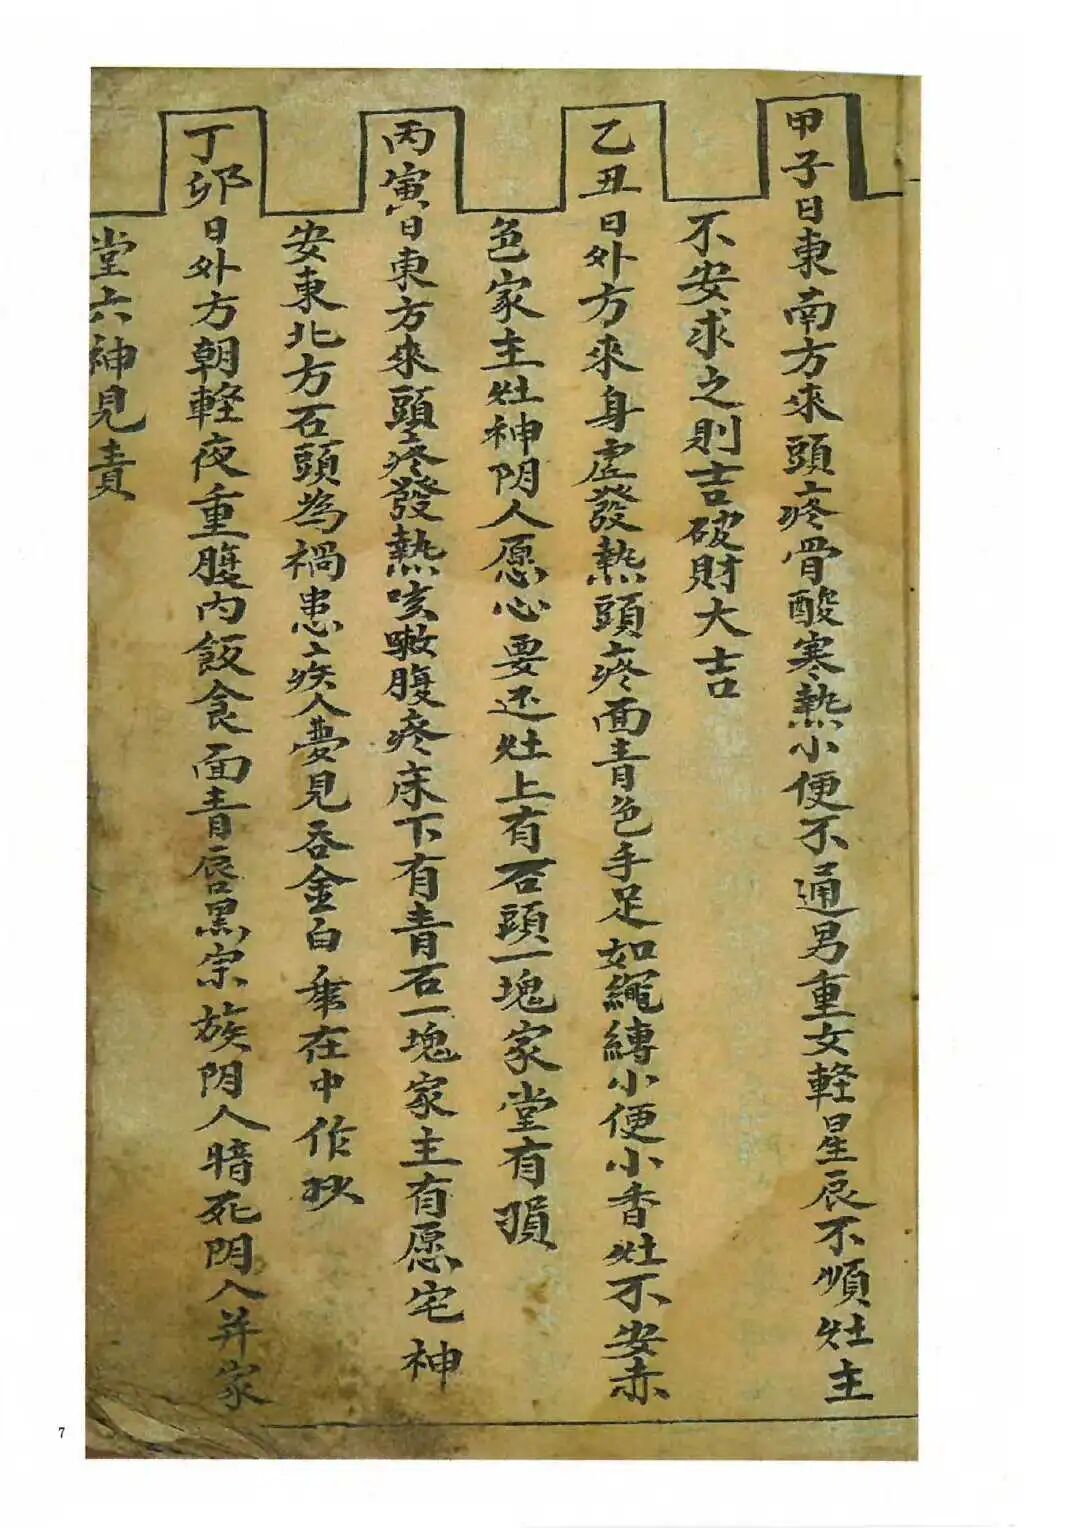 甲子日東南方來頭疼骨酸寒熱小便不通男重女軽星辰不順灶主
不安求之則吉破財大吉
乙丑日外方來身虛發熱頭疼面青色手足如繩縛小便小香灶不安赤
色家主灶神阴人愿心要还灶上有石頭一塊家堂有損
丙寅日東方來頭疼發熱咳嗽腹疼床下有青石一塊家主有愿宅神
安東北方石頭為禍患疾人夢見吞金白在中作
丁卯日外方朝軽夜重腹内飯食面青唇黑宗族阴人暗死阴人并家
堂六神見責
7